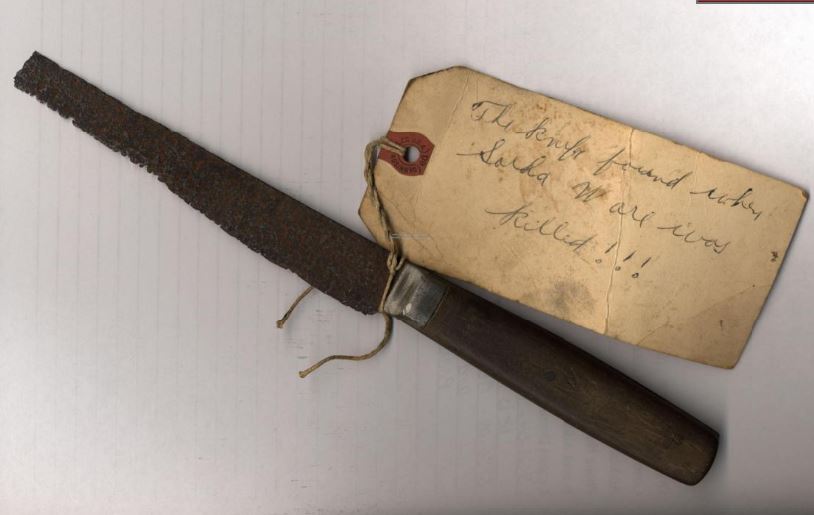 The knife found when
Sarha Ware was
killed!!!